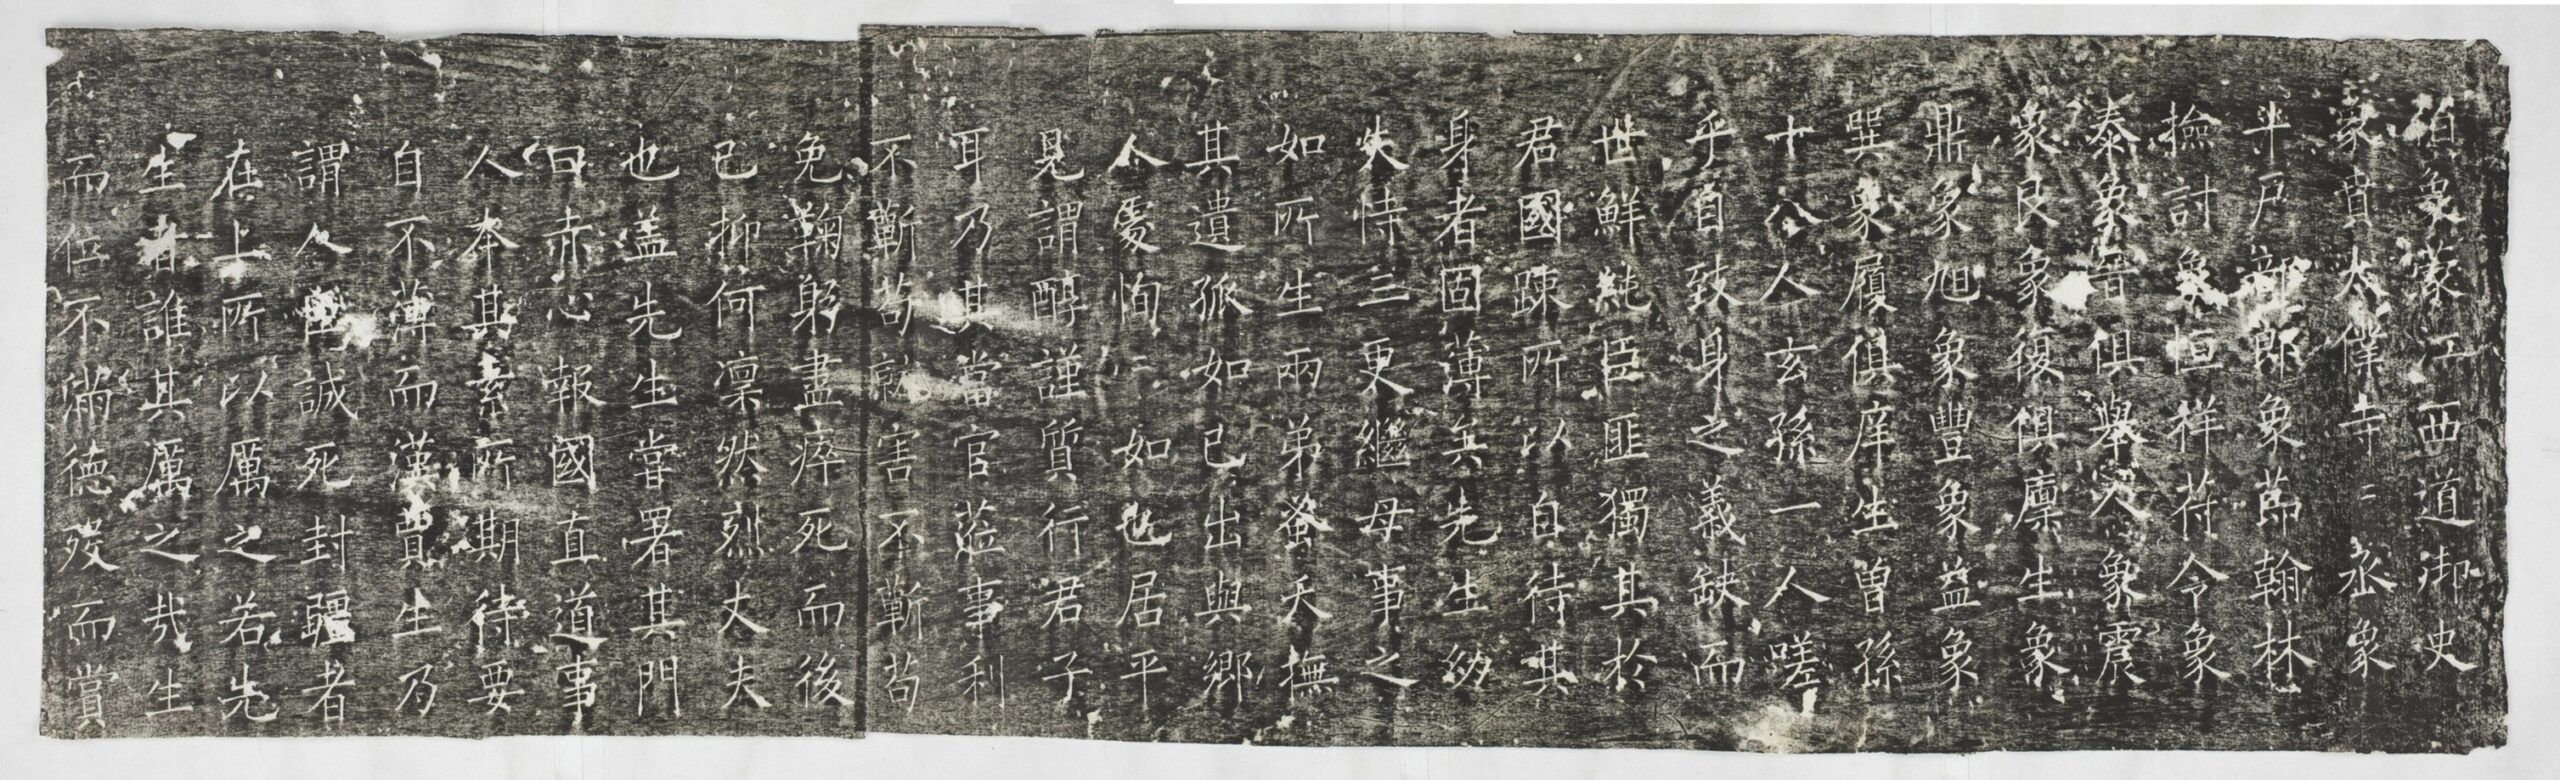 伯象蒙江西道御史
象賁太僕寺二丞象
丰戶部郎象節翰林
撿討象恒祥符令象
泰象晉俱舉人象震
象艮象復俱廩生象
鼎象旭象豐象益象
巽象履俱庠生曾孫
十八人玄孫一人嗟
乎自致身之義缺而
世鮮純臣匪獨其於
君國踈所以自待其
身者固薄矣先生幼
失恃三更繼母事之
如所生兩弟蚤夭撫
其遺孤如已出與鄉
人處恂二如也居平
見謂醇謹質行君子
耳乃其當官蒞事利
不蘄苟就害不蘄苟
免鞠躬盡瘁死而後
已抑何凜然烈丈夫
也盖先生甞署其門
曰赤心報國直道事
人夲其素所期待要
自不薄而漢賈生乃
謂人臣誠死封疆者
在上所以厲之若先
生者誰其厲之哉生
而位不滿德歿而賞